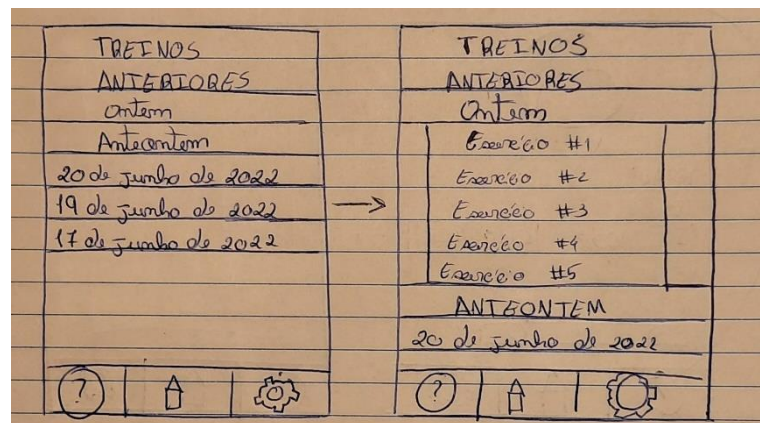 TREINOS
ANTERIORES
Ontem
Anteontem
20 de Junho de 2022
19 de Junho de 2022
17 de Junho de 2022
?
TREINOS
ANTERIORES
Ontem
Exercício #1
Exercício #2
Exercício #3
Exercício #4
Exercício #5
ANTEONTEM
20 de Junho de 2022
?